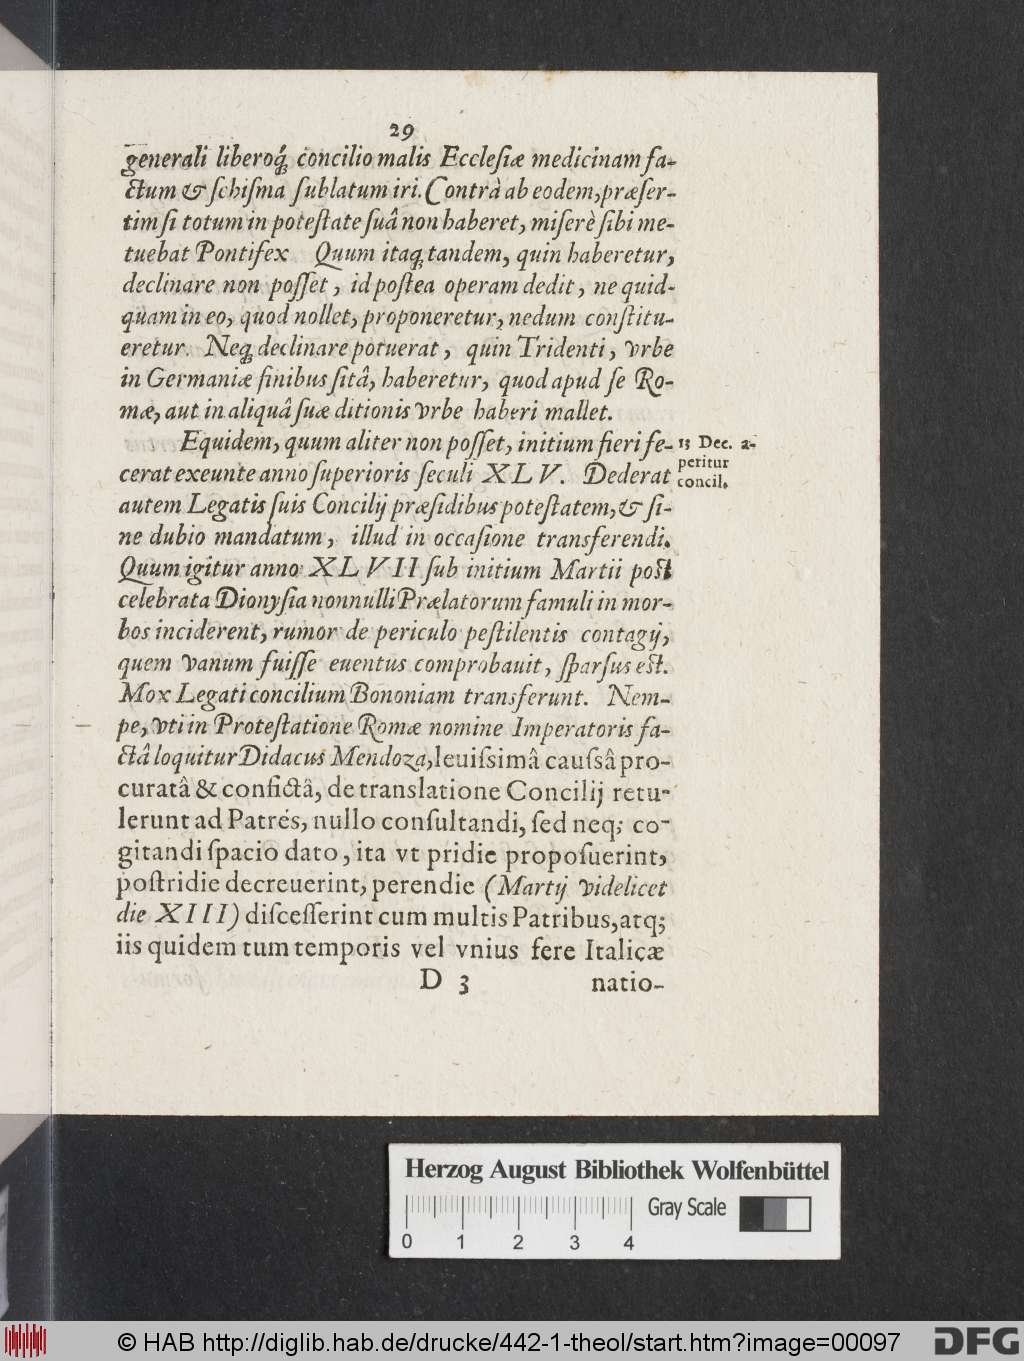 29
generali liberoq́; concilio malis Eccleſiæ medicinam fa-
ctum & ſchiſma ſublatum iri. Contrà ab eodem, præſer-
tim ſi totum in poteſtate ſuâ non haberet, miſerè ſibi me-
tuebat Pontifex Quum itaq; tandem, quin haberetur,
declinare non poſſet, id poſtea operam dedit, ne quid-
quam in eo, quod nollet, proponeretur, nedum conſtitu-
eretur. Neq; declinare potuerat, quin Tridenti, vrbe
in Germaniæ finibus ſitâ, haberetur, quod apud ſe Ro-
mæ, aut in aliquâ ſuæ ditionis vrbe haberi mallet.
Equidem, quum aliter non poſſet, initium fieri fe-
13 Dec. a-
peritur
concil.
cerat exeunte anno ſuperioris ſeculi XLV. Dederat
autem Legatis ſuis Concilij præſidibus poteſtatem, & ſi-
ne dubio mandatum, illud in occaſione transferendi.
Quum igitur anno XLVII ſub initium Martii poſt
celebrata Dionyſia nonnulli Prælatorum famuli in mor-
bos inciderent, rumor de periculo peſtilentis contagij,
quem vanum fuiſſe euentus comprobauit, ſparſus eſt.
Mox Legati concilium Bononiam transferunt. Nem-
pe, vti in Proteſtatione Romæ nomine Imperatoris fa-
ctâ loquitur Didacus Mendoza, leuiſsimâ cauſsâ pro-
curatâ & confictâ, de translatione Concilij retu-
lerunt ad Patres, nullo conſultandi, ſed neq; co-
gitandi ſpacio dato, ita vt pridie propoſuerint,
poſtridie decreuerint, perendie (Martij videlicet
die XIII) diſceſſerint cum multis Patribus, atq;
iis quidem tum temporis vel vnius fere Italicæ
D 3 natio-
Herzog August Bibliothek Wolfenbüttel
Gray Scale
0 1 2 3 4
© HAB http://diglib.hab.de/drucke/442-1-theol/start.htm?image=00097
DFG